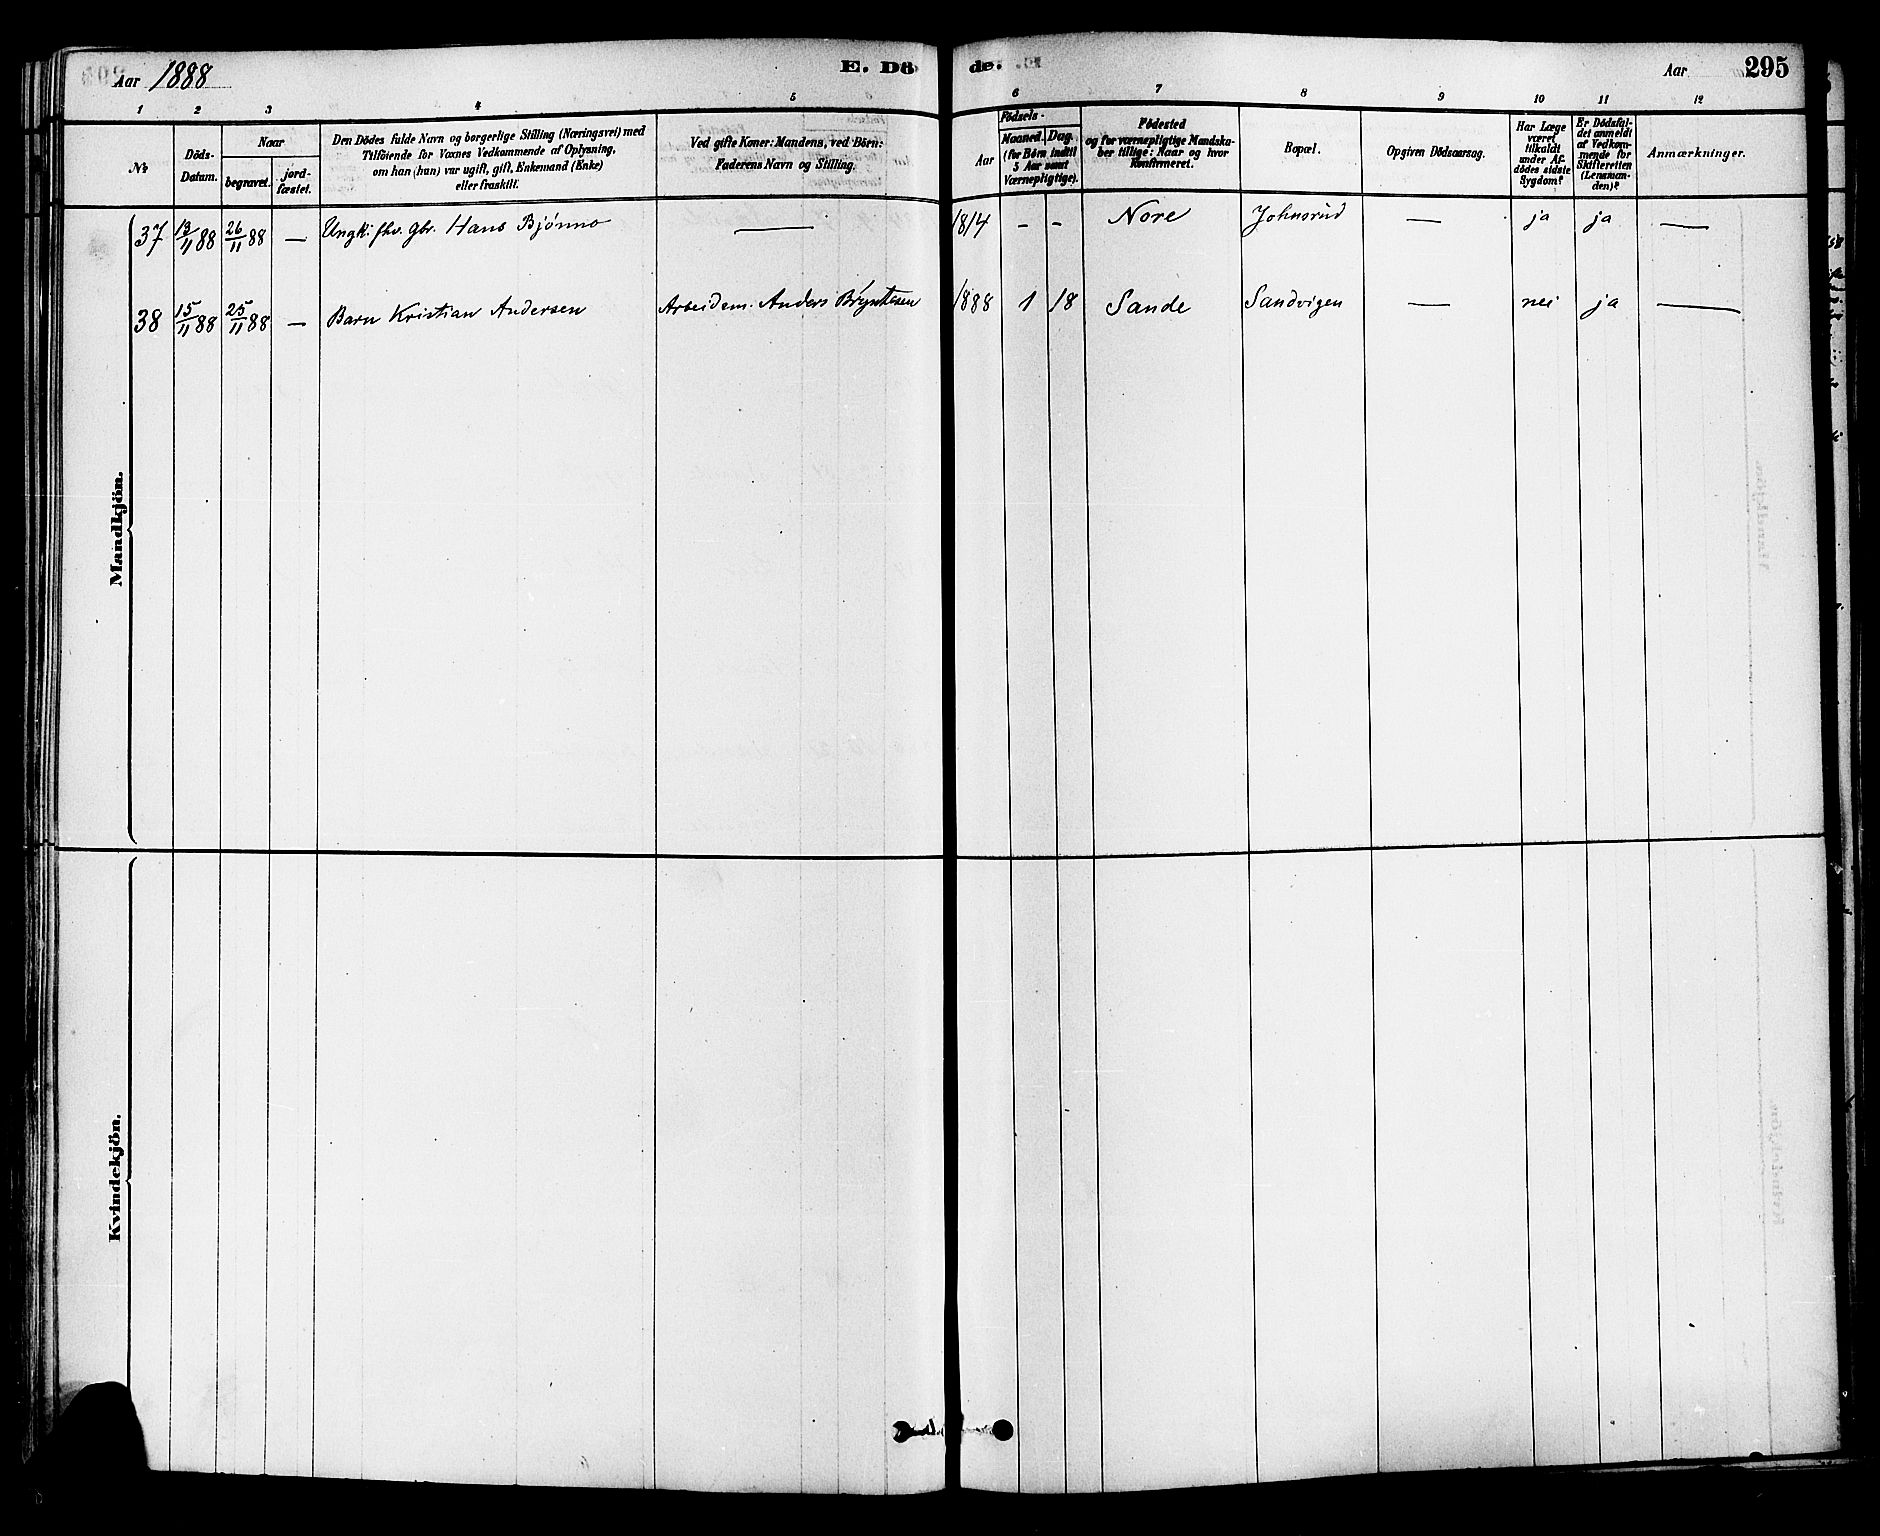 Aar 1888
E. Dö
de.
Aar
295
1 2 3 4 5 6 7 8 9 10 11 12
No
Döds-
Datum.
Naar
begravet.
jord-
fæstet.
Den Dödes fulde Navn og borgerlige Stilling (Næringsvei) med
Tilföiende for Voxnes Vedkommende af Oplysning,
om han (hun) var ugift, gift, Enkemand (Enke)
eller fraskilt.
Ved gifte Koner: Mandens, ved Börn:
Faderens Navn og Stilling.
Födsels-
Aar
Maaned. Dag.
(for Börn indtil
5 Aar samt
Værnepligtige).
Födested
og for værnepligtige Mandska-
ber tillige: Naar og hvor
Konfirmeret.
Bopæl.
Opgiven Dödsaarsag.
Har Læge
været
tilkaldt
under Af-
dödes sidste
Sygdom?
Er Dödsfal-
det anmeldt
af Vedkom-
mende for
Skifteretten
(Lensman-
den)?
Anmærkninger.
Mandkjön.
37 13/11 88 26/11 88 — Ungk. fhv. gbr. Hans Bjønno — 1814 - - Nore Johnsrud — ja ja —
38 15/11 88 25/11 88 — Barn Kristian Andersen Arbeidsm. Anders Bryntesen 1888 1 18 Sande Sandvigen — nei ja —
Kvindekjön.